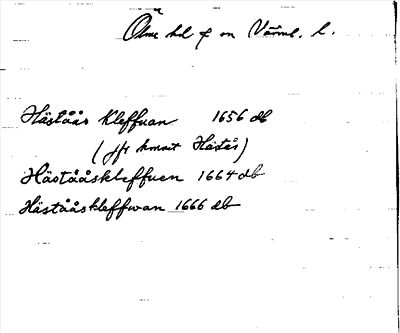 Ölme hd f on Värml. l.
Häståås Kleffuan 1656 db
(jfr hmnt Håtås)
Hästååskleffuen 1664 db
Hästååskleffwan 1666 db